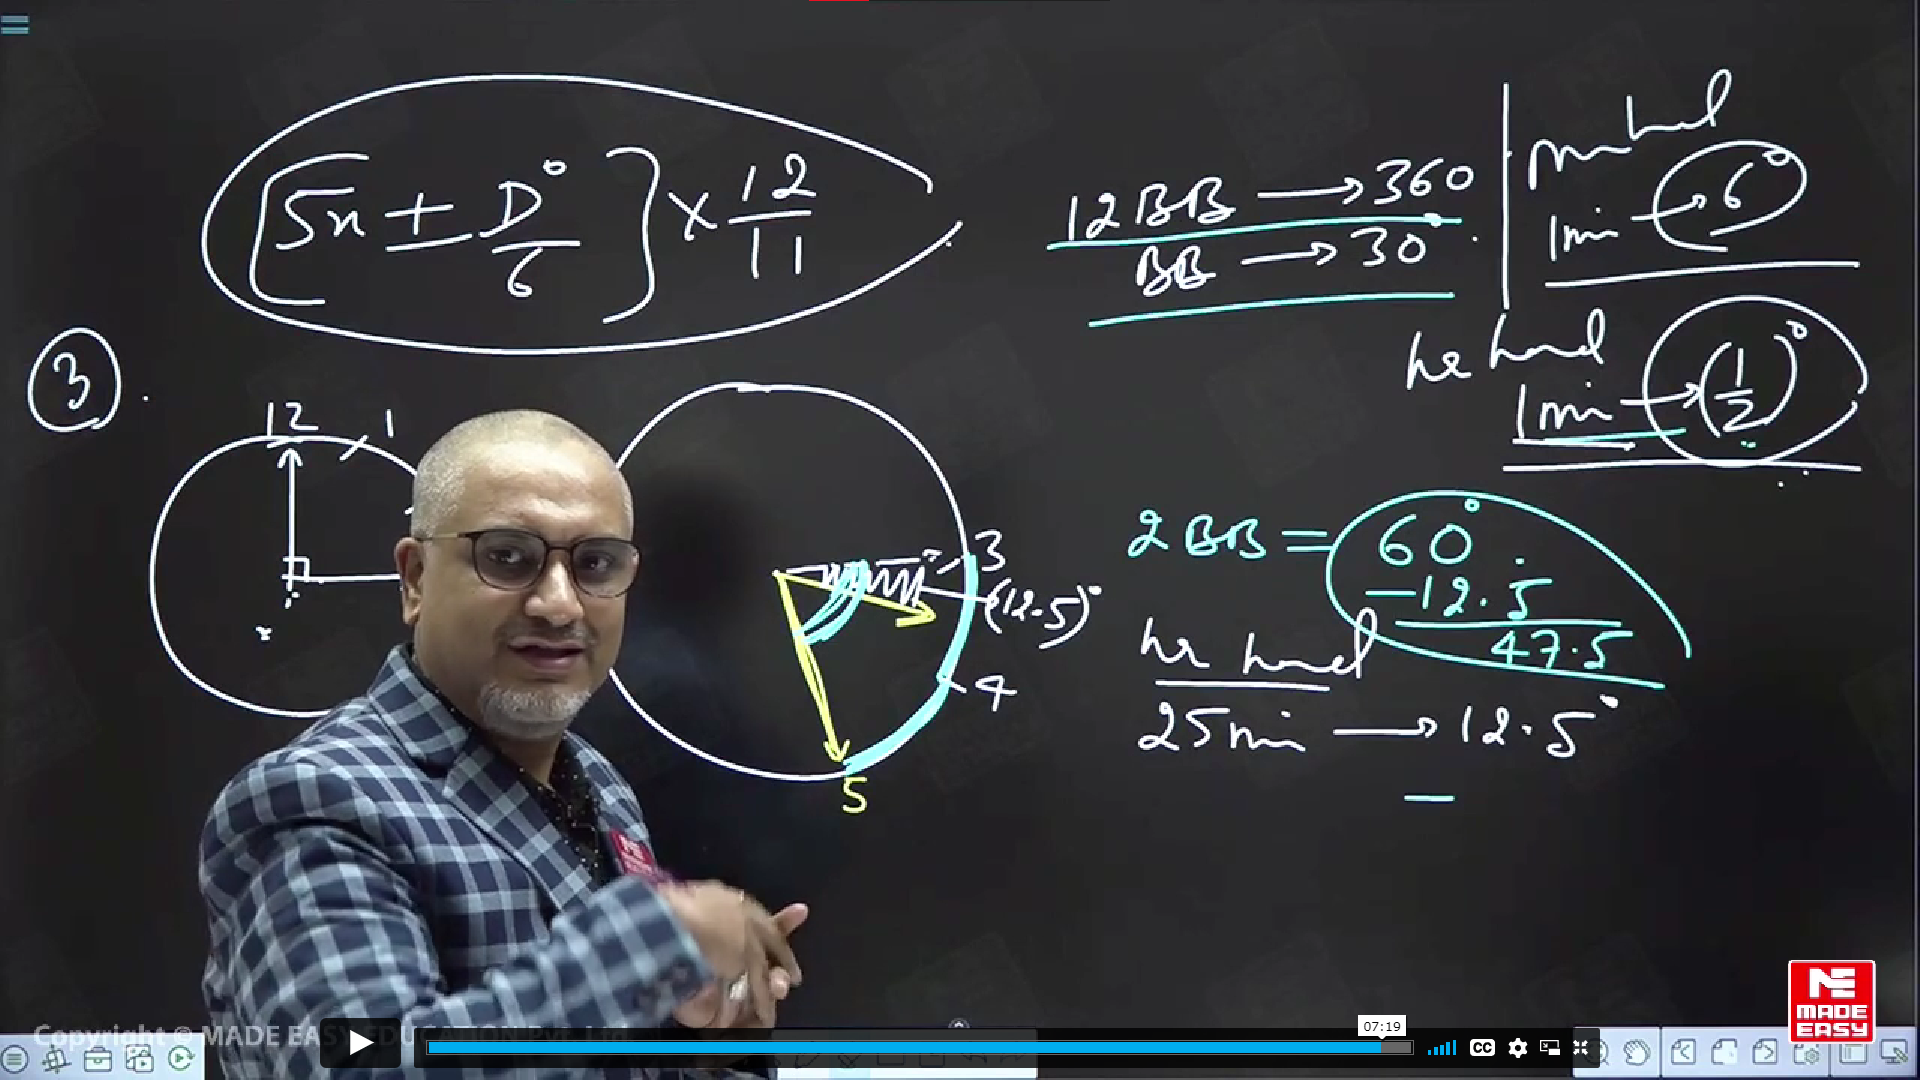 [5n ± D°/6] × 12/11
12BB → 360
BB → 30°
1min → 6°
hr hand
1min → (1/2)°
3
12
1
3
(12.5)°
4
5
2BB = 60°
-12.5
47.5
hr hand
25min → 12.5°
MADE EASY
Copyright © MADE EASY EDUCATION Pvt. Ltd.
07:19
CC